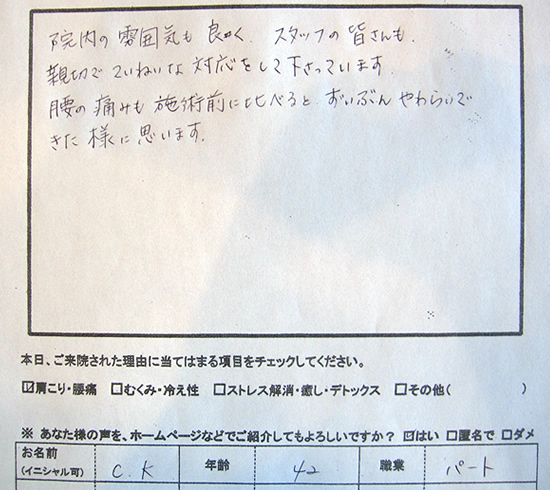 院内の雰囲気も良く、スタッフの皆さんも、
親切でていねいな対応をして下さっています。
腰の痛みも施術前に比べると、ずいぶんやわらいで
きた様に思います。
本日、ご来院された理由に当てはまる項目をチェックしてください。
☑肩こり・腰痛 □むくみ・冷え性 □ストレス解消・癒し・デトックス □その他( )
※ あなた様の声を、ホームページなどでご紹介してもよろしいですか? ☑はい □匿名で □ダメ
お名前
(イニシャル可) C.K 年齢 42 職業 パート